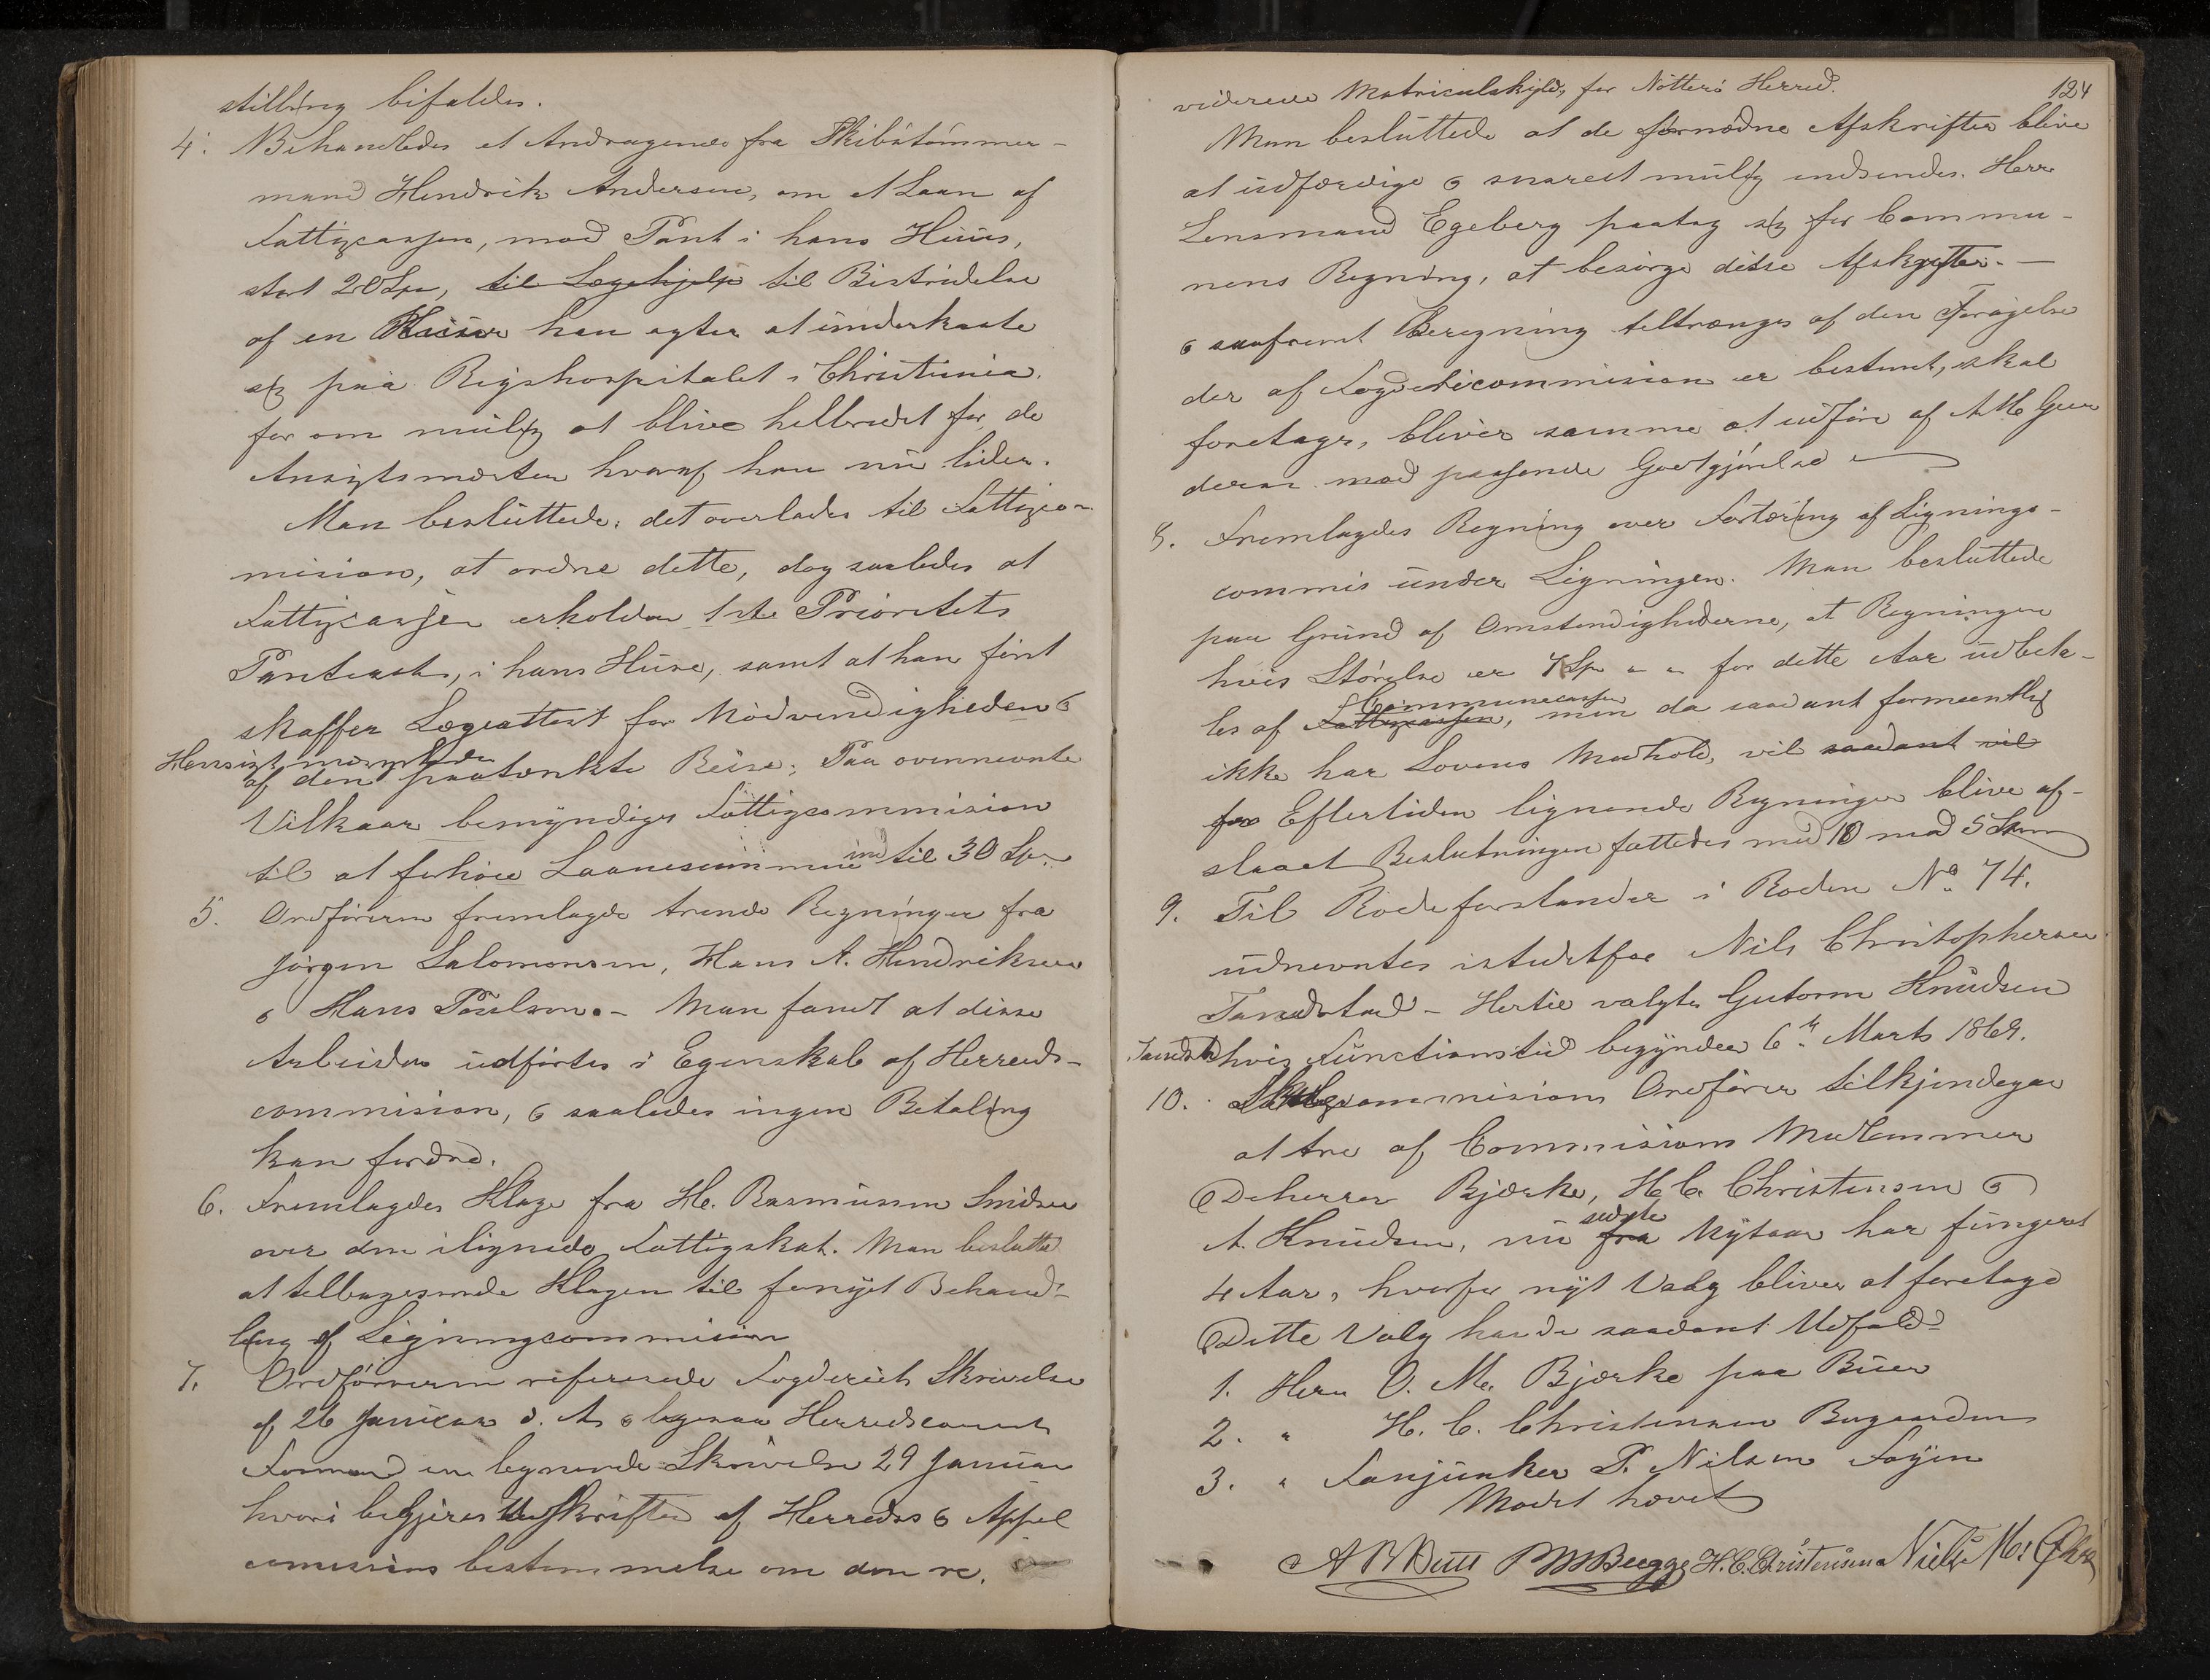 stilling bifaldes.
4. Behandledes et Andragende fra Skibstømmer-
mand Hendrik Andersen, om et Laan af
Fattigcassen, mod Pant i hans Huus,
stort 20 Spd, til Lægehjelp til Bestridelse
af en Kuur han agter at underkaste
sig paa Rigshospitalet i Christiania.
for om mulig at blive helbredet for de
Ansigtsmerter hvoraf han nu lider.
Man besluttede, det overlades til Fattigcom-
mision, at ordne dette, dog saaledes at
Fattigcassen erholder 1ste Prioritets
Panteret, i hans Huse, samt at han først
skaffer Lægeattest for Nødvendigheden &
Hensigtsmæssigheden
af den paatænkte Reise; Paa ovennevnte
Vilkaar bemyndiges Fattigcommision
til at forhøie Laanesummen ind til 30 Sp.
5. Ordføreren fremlagde trende Regninger fra
Jørgen Salomonsen, Hans A. Hendriksen
& Hans Poulson. - Man fandt at disse
Arbeider udførtes i Egenskab af Herreds-
commision, & saaledes ingen Betaling
kan fordre.
6. Fremlagdes Klage fra H. Rasmussen Smidsrø
over den ilignede Fattigskat. Man besluttede
at tilbagesende Klagen til fornyet Behand-
ling af Ligningscommision
7. Ordføreren refererede Fogderiets Skrivelse
af 26 Januar d. A. & ligesaa Herredscomis
Formand en lignende Skrivelse 29 Januar
hvori begjeres Udskrifter af Herreds & Appel
comisions bestemmelse om den re.
124
viderede Matriculskyld, for Nøtterø Herred.
Man besluttede at de fornødne Afskrifter blive
at udfærdige & snarest mulig indsendes. Herr
Lensmand Egeberg paatog sig for Commu-
nens Regning, at besørge disse Afskrifter. -
& saafremt Beregning tiltrænges af den Forøgelse
der af Fogdericommision er bestemt, skal
foretages, bliver samme at udføre af A M Gun
dersen mod passende Godtgjørelse
8. Fremlagdes Regning over Fortæring af Lignings-
commis under Ligningen. Man besluttede
paa Grund af Omstendighederne, at Regningen
hvis Størelse er 7 Sp " " for dette Aar udbeta-
Communecassen
les af Fattigcassen, men da saadant formeentlig
ikke har Lovens Medhold, vil saadant vil
for Eftertiden lignende Regninger blive af-
slaaet Beslutningen fattedes med 10 mod 5 Stem
9. Til Rodeforstander i Roden No 74.
udnevntes istedetfor Nils Christophersen
Tandstad - Hertil valgte Gutorm Knudsen
hvis Functionstid begynder 6te Marts 1869.
10. Skolecommisions Ordfører tilkjendegav
at tre af Commisions Medlemmer
Deherrer Bjerke, H. C. Christensen &
sidste
A. Knudsen, nu fra Nytaar har fungeret
4 Aar, hvorfor nyt Valg bliver at foretage
Dette Valg havde saadant Udfald
1. Herr O. M. Bjerke paa Buer
2. " H. C. Christensen Bugaarden
3. " Fanjunker P. Nilsen Føyen
Mødet hævet
H. C. Christensen